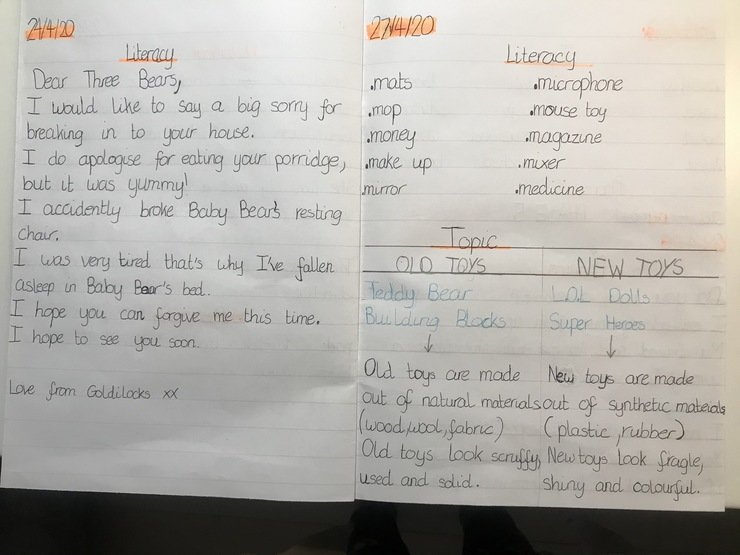 24/4/20
Literacy
Dear Three Bears,
I would like to say a big sorry for
breaking in to your house.
I do apologise for eating your porridge,
but it was yummy!
I accidently broke Baby Bear's resting
chair.
I was very tired that's why I've fallen
asleep in Baby Bear's bed.
I hope you can forgive me this time.
I hope to see you soon.
Love from Goldilocks xx
27/4/20
Literacy
.mats .microphone
.mop .mouse toy
.money .magazine
.make up .mixer
.mirror .medicine
Topic
OLD TOYS NEW TOYS
Teddy Bear LOL Dolls
Building Blocks Super Heroes
Old toys are made New toys are made
out of natural materials out of synthetic materials
(wood, wool, fabric) (plastic, rubber)
Old toys look scruffy, New toys look fragle,
used and solid. shiny and colourful.